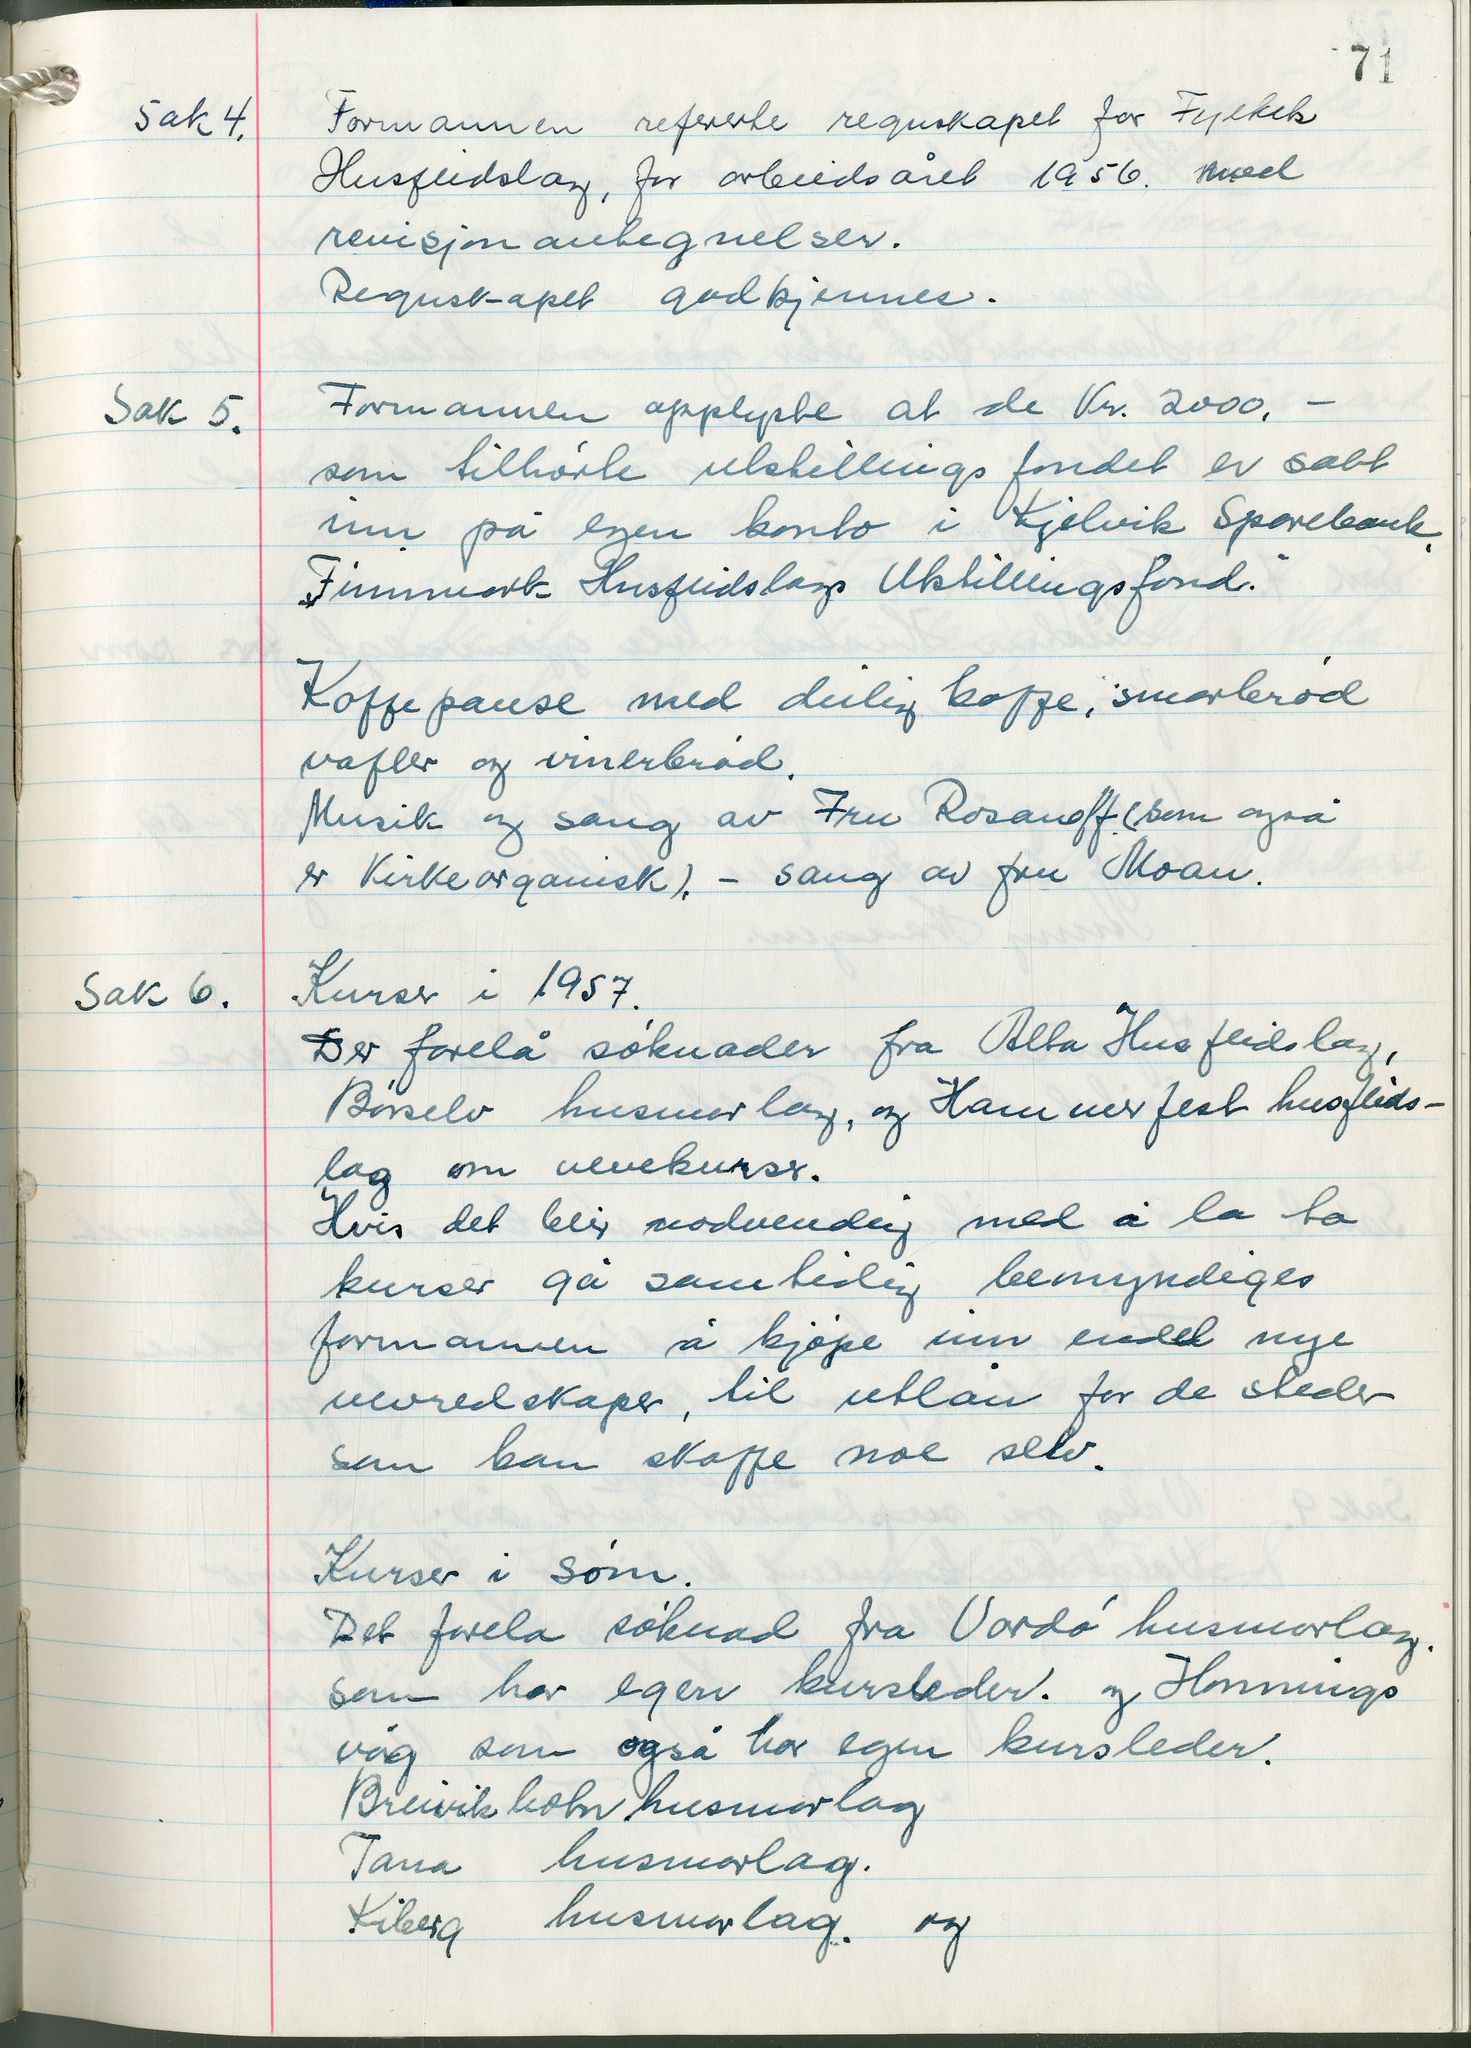 71
Sak 4. Formannen refererte regnskapet for Fylkets
Husflidslag, for arbeidsåret 1956. med
revisjonantegnelser.
Regnskapet godkjennes.
Sak 5. Formannen opplyste at de Kr. 2000,-
som tilhørte utstillingsfondet er satt
inn på egen konto i Kjelvik Sparebank.
"Finnmark Husflidslags Utstillingsfond."
Kaffepause med deilig kaffe, smørbrød
vafler og vinerbrød.
Musik og sang av Fru Rosanoff (som også
er Kirkeorganisk). - sang av fru Moan.
Sak 6. Kurser i 1957.
Der forelå søknader fra Alta Husflidslag,
Børselv husmorlag, og Hammerfest husflids-
lag om vevekurser.
Hvis det blir nødvendig med å la to
kurser gå samtidig bemyndiges
formannen å kjøpe inn endel nye
vevredskaper, til utlån for de steder
som kan skaffe noe selv.
Kurser i søm.
Det forela søknad fra Vardø husmorlag.
som har egen kursleder. og Honnings
våg som også har egen kursleder.
Breivikbotn husmorlag
Tana husmorlag.
Kiberg husmorlag. og